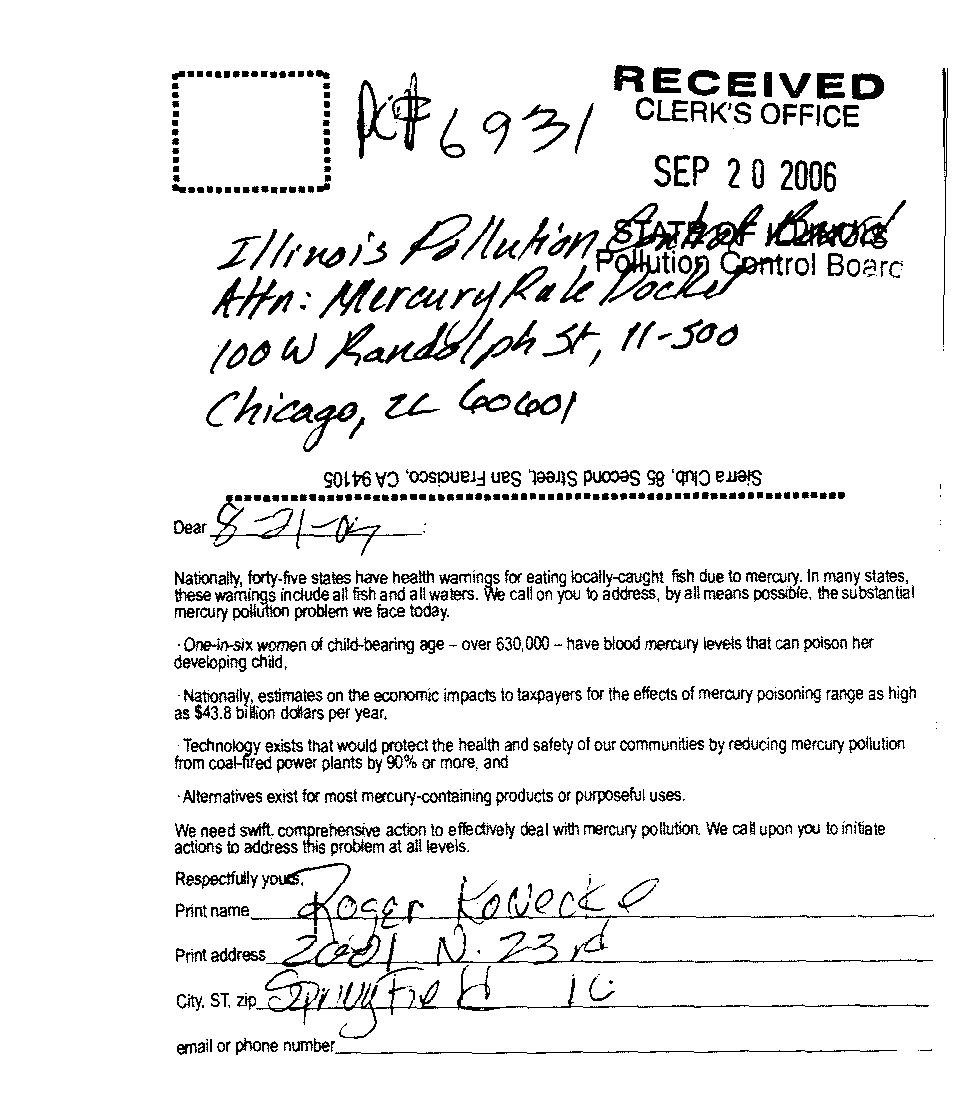 PC# 6931
RECEIVED
CLERK'S OFFICE
SEP 20 2006
STATE OF ILLINOIS
Pollution Control Board
Illinois Pollution Control Board
Attn: Mercury Rule Docket
100 W Randolph St, 11-500
Chicago, IL 60601
Sierra Club, 85 Second Street, San Francisco, CA 94105
Dear 8-21-04 :
Nationally, forty-five states have health warnings for eating locally-caught fish due to mercury. In many states,
these warnings include all fish and all waters. We call on you to address, by all means possible, the substantial
mercury pollution problem we face today.
· One-in-six women of child-bearing age – over 630,000 – have blood mercury levels that can poison her
developing child,
· Nationally, estimates on the economic impacts to taxpayers for the effects of mercury poisoning range as high
as $43.8 billion dollars per year,
· Technology exists that would protect the health and safety of our communities by reducing mercury pollution
from coal-fired power plants by 90% or more, and
· Alternatives exist for most mercury-containing products or purposeful uses.
We need swift, comprehensive action to effectively deal with mercury pollution. We call upon you to initiate
actions to address this problem at all levels.
Respectfully yours,
Print name Roger Konecke
Print address 2001 N. 23rd
City, ST, zip Springfield IL
email or phone number